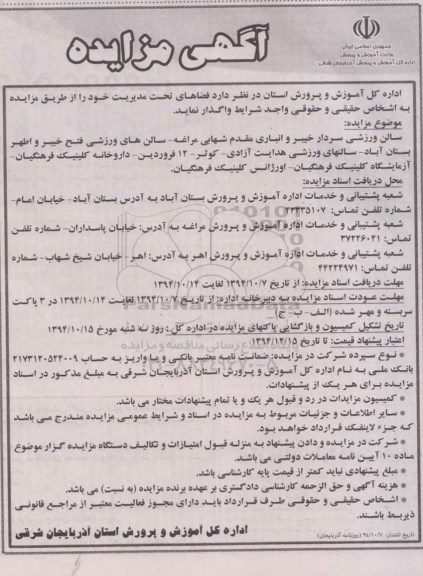 جمهوری اسلامی ایران
وزارت آموزش و پرورش
اداره کل آموزش و پرورش آذربایجان شرقی
آگهی مزایده
اداره کل آموزش و پرورش استان در نظر دارد فضاهای تحت مدیریت خود را از طریق مزایده
به اشخاص حقیقی و حقوقی واجد شرایط واگذار نماید.
موضوع مزایده:
سالن ورزشی سردار خیبر و انباری مقدم شهابی مراغه- سالن های ورزشی فتح خیبر و اطهر
بستان آباد- سالنهای ورزشی هدایت آزادی- کوثر- ۱۲ فروردین- داروخانه کلینیک فرهنگیان-
آزمایشگاه کلینیک فرهنگیان- اورژانس کلینیک فرهنگیان.
محل دریافت اسناد مزایده:
شعبه پشتیبانی و خدمات اداره آموزش و پرورش بستان آباد به آدرس بستان آباد- خیابان امام-
شماره تلفن تماس: ۴۳۳۳۵۱۰۷
شعبه پشتیبانی و خدمات اداره آموزش و پرورش مراغه به آدرس: خیابان پاسداران- شماره تلفن
تماس: ۳۷۲۲۶۰۴۱
شعبه پشتیبانی و خدمات اداره آموزش و پرورش اهر به آدرس: اهر- خیابان شیخ شهاب- شماره
تلفن تماس: ۴۴۲۲۴۹۷۱
مهلت دریافت اسناد مزایده: از تاریخ ۱۳۹۴/۱۰/۷ لغایت ۱۳۹۴/۱۰/۱۴
مهلت عودت اسناد مزایده به دبیرخانه اداره: از تاریخ ۱۳۹۴/۱۰/۷ لغایت ۱۳۹۴/۱۰/۱۴ در ۳ پاکت
سربسته و مهر شده (الف- ب- ج)
تاریخ تشکیل کمیسیون و بازگشایی پاکتهای مزایده در اداره کل: روز سه شنبه مورخ ۱۳۹۴/۱۰/۱۵
اعتبار پیشنهاد قیمت: تا تاریخ ۱۳۹۴/۱۲/۱۵
* نوع سپرده شرکت در مزایده: ضمانت نامه معتبر بانکی و یا واریز به حساب ۲۱۷۳۱۲۰۵۲۲۰۰۹
بانک ملی به نام اداره کل آموزش و پرورش استان آذربایجان شرقی به مبلغ مذکور در اسناد
مزایده برای هر یک از پیشنهادات.
* کمیسیون مزایدات در رد و قبول هر یک و یا تمام پیشنهادات مختار می باشد.
* سایر اطلاعات و جزئیات مربوط به مزایده در اسناد و شرایط عمومی مزایده مندرج می باشد
که جزء لاینفک قرارداد خواهد بود.
* شرکت در مزایده و دادن پیشنهاد به منزله قبول امتیازات و تکالیف دستگاه مزایده گزار موضوع
ماده ۱۰ آیین نامه معاملات دولتی می باشد.
* مبلغ پیشنهادی نباید کمتر از قیمت پایه کارشناسی باشد.
* هزینه آگهی و حق الزحمه کارشناسی دادگستری بر عهده برنده مزایده (به نسبت) می باشد.
* اشخاص حقیقی و حقوقی طرف قرارداد باید دارای مجوز فعالیت معتبر از مراجع قانونی
ذیربط باشند.
اداره کل آموزش و پرورش استان آذربایجان شرقی
تاریخ انتشار: ۹۴/۱۰/۷ (روزنامه آذربایجان)